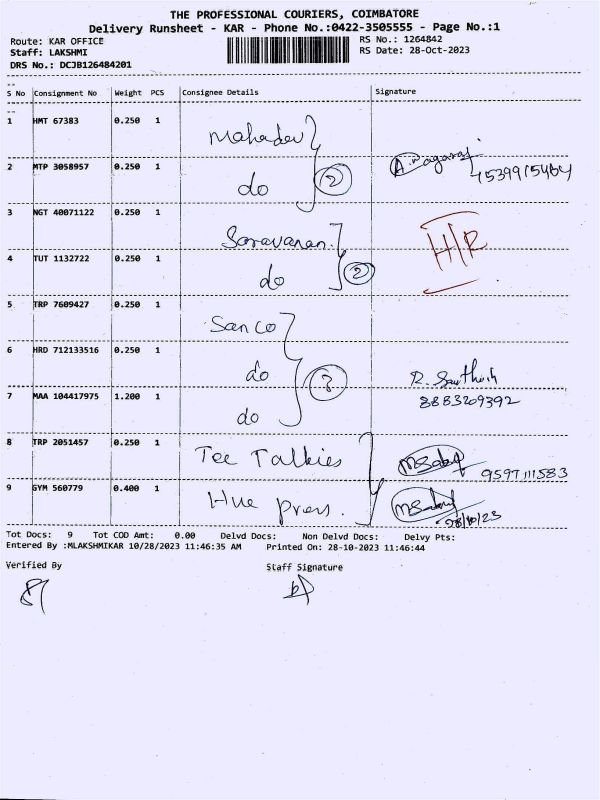 THE PROFESSIONAL COURIERS, COIMBATORE
Delivery Runsheet - KAR - Phone No.:0422-3505555 - Page No.:1
Route: KAR OFFICE RS No.: 1264842
Staff: LAKSHMI RS Date: 28-Oct-2023
DRS No.: DCJB126484201
S No Consignment No Weight PCS Consignee Details Signature
1 HMT 67383 0.250 1 Mahadev
2 MTP 3058957 0.250 1 do 2
3 NGT 40071122 0.250 1 Saravanan. H/R
4 TUT 1132722 0.250 1 do 2
5 TRP 7609427 0.250 1 Sanco
6 HRD 712133516 0.250 1 do 3 R. Santhosh
7 MAA 104417975 1.200 1 do 8883209392
8 TRP 2051457 0.250 1 Tee Talkies 9597111583
9 GYM 560779 0.400 1 Hue press. 28/10/23
Tot Docs: 9 Tot COD Amt: 0.00 Delvd Docs: Non Delvd Docs: Delvy Pts:
Entered By :MLAKSHMIKAR 10/28/2023 11:46:35 AM Printed On: 28-10-2023 11:46:44
Verified By Staff Signature